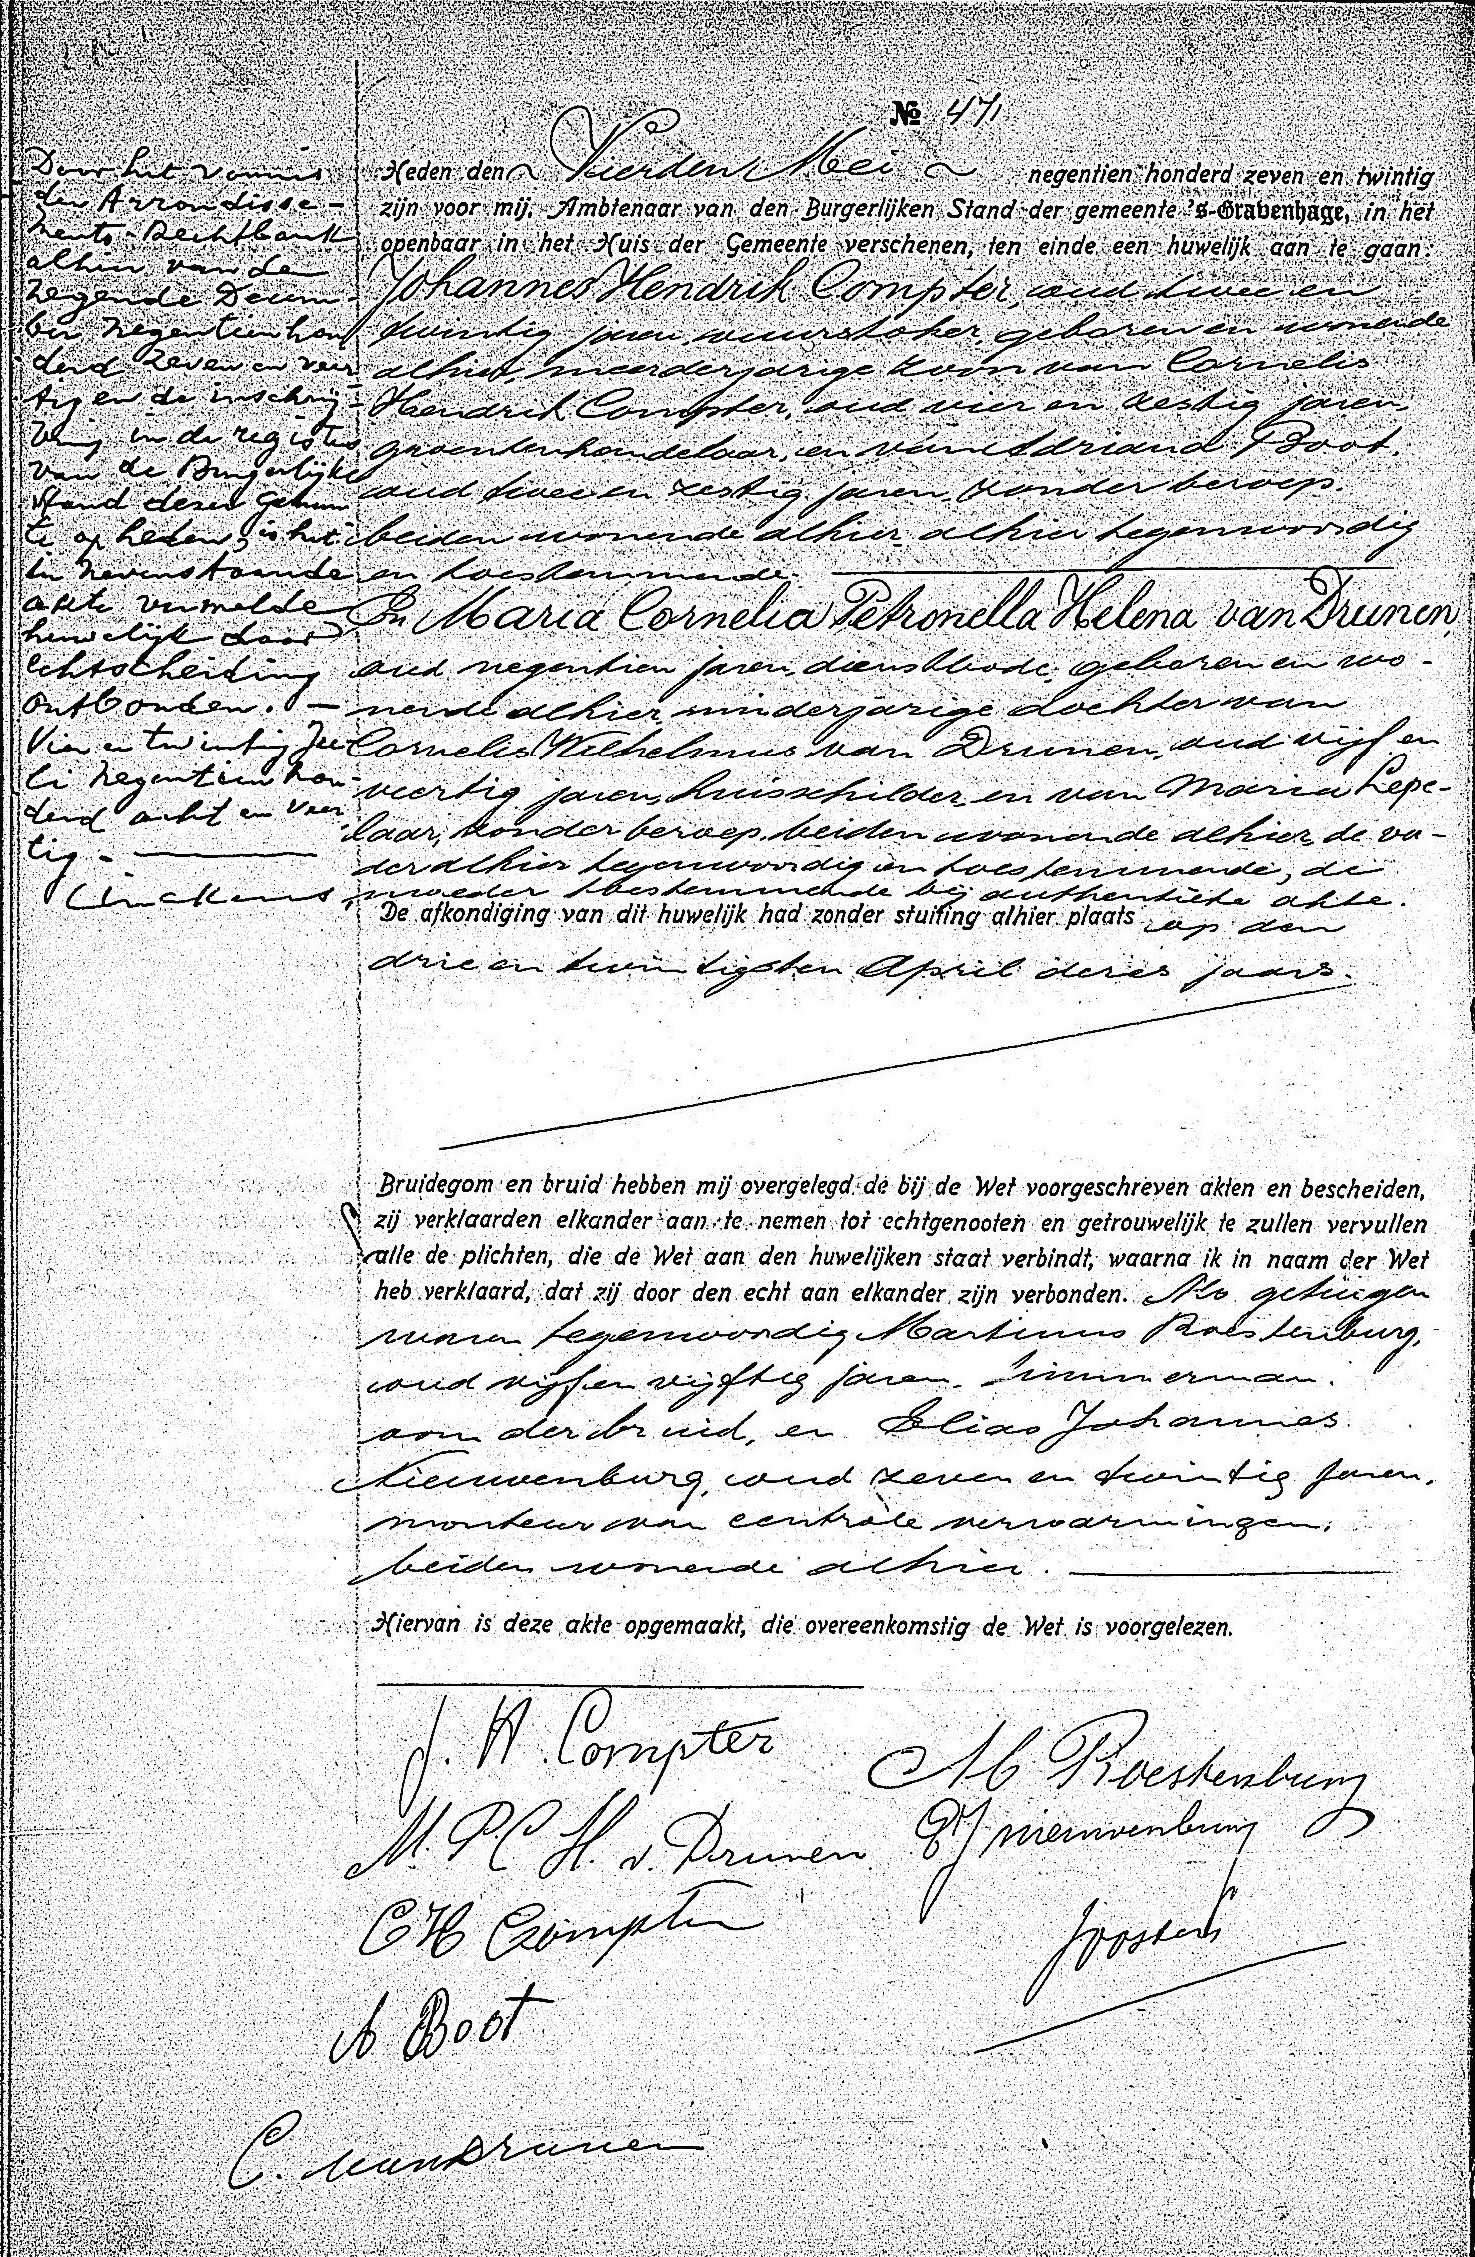 № 471
Door het vonnis
der Arrondisse-
ments-Rechtbank
alhier van den
negende Decem-
ber negentienhon
derd zeven en veer
tig en de inschrij-
ving in de registers
van de Burgerlijke
Stand dezer Gemeen
te op heden, is het
in nevenstaande
akte vermelde
huwelijk door
echtscheiding
ontbonden. —
Vier en twintig Ju
li negentien hon-
derd acht en veer
tig. —
Heden den Vierden Mei negentien honderd zeven en twintig
zijn voor mij, Ambtenaar van den Burgerlijken Stand der gemeente 's-Gravenhage, in het
openbaar in het Huis der Gemeente verschenen, ten einde een huwelijk aan te gaan:
Johannes Hendrik Compter, oud twee en
twintig jaren, vuurstoker, geboren en wonende
alhier, meerderjarige zoon van Cornelis
Hendrik Compter, oud vier en zestig jaren,
groentenhandelaar, en van Adriana Boot,
oud twee en zestig jaren, zonder beroep,
beiden wonende alhier, alhier tegenwoordig
en toestemmende.
En Maria Cornelia Petronella Helena van Drunen,
oud negentien jaren, dienstbode, geboren en wo-
nende alhier, minderjarige dochter van
Cornelis Wilhelmus van Drunen, oud vijf en
veertig jaren, huisschilder, en van Maria Lepe-
laar, zonder beroep, beiden wonende alhier, de va-
der alhier tegenwoordig en toestemmende, de
moeder toestemmende bij authentieke akte.
De afkondiging van dit huwelijk had zonder stuiting alhier plaats op den
drie en twintigsten April dezes jaars.
Bruidegom en bruid hebben mij overgelegd de bij de Wet voorgeschreven akten en bescheiden,
zij verklaarden elkander aan te nemen tot echtgenooten en getrouwelijk te zullen vervullen
alle de plichten, die de Wet aan den huwelijken staat verbindt, waarna ik in naam der Wet
heb verklaard, dat zij door den echt aan elkander zijn verbonden. Als getuigen
waren tegenwoordig Martinus Roestenburg,
oud vijf en vijftig jaren, timmerman,
oom der bruid, en Elias Johannes
Nieuwenburg, oud zeven en twintig jaren,
monteur van centrale verwarmingen,
beiden wonende alhier.
Hiervan is deze akte opgemaakt, die overeenkomstig de Wet is voorgelezen.
J. H. Compter
M Roestenburg
M. P. C. H. v. Drunen
EJ Nieuwenburg
C H Compter
Joosten
A Boot
C. van Drunen